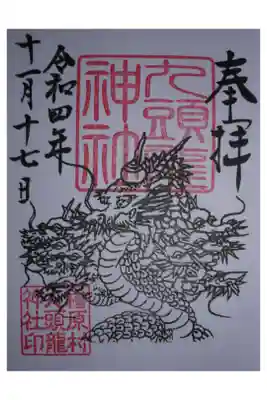 奉拝
九頭龍
神社
令和四年
十一月十七日
檜原村
九頭龍
神社印